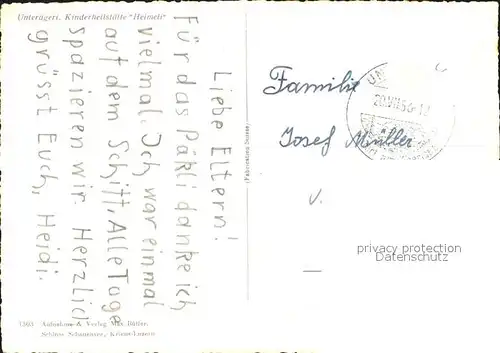 Unterägeri. Kinderheilstätte "Heimeli"
Liebe Eltern!
Für das Päkli danke ich
vielmal. Ich war einmal
auf dem Schiff. Alle Tage
spazieren wir. Herzlich
grüsst Euch, Heidi.
Familie
Josef Müller
20.VII.56-12
privacy protection
Datenschutz
Aufnahme & Verlag Max Bütler,
Schloss Schauensee, Kriens-Luzern